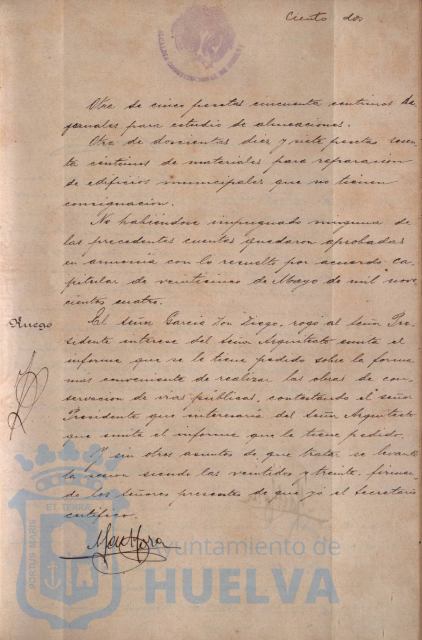 Ciento dos
Otra de cinco pesetas cincuenta centimos de
jornales para estudio de alineaciones.
Otra de doscientas diez y siete pesetas sesen-
ta centimos de materiales para reparacion
de edificios municipales que no tienen
consignacion.
No habiéndose impugnado ninguna de
las precedentes cuentas quedaron aprobadas
en armonia con lo resuelto por acuerdo ca-
pitular de veintiseis de Mayo de mil nove
cientos cuatro.
Ruego
El señor Garcia Don Diego, rogó al Señor Pre-
sidente interese del Señor Arquitecto emita el
informe que se le tiene pedido sobre la forma
mas conveniente de realizar las obras de con-
servacion de vias públicas, contestando el señor
Presidente que interesaría del Señor Arquitecto
que emita el informe que le tiene pedido.
Y sin otros asuntos de que tratar se levanta
la sesion siendo las veintidos y treinta, firman-
do los señores presentes de que yo el Secretario
certifico.
Ayuntamiento de
HUELVA
PORTUS MARIS
ET TERRAE